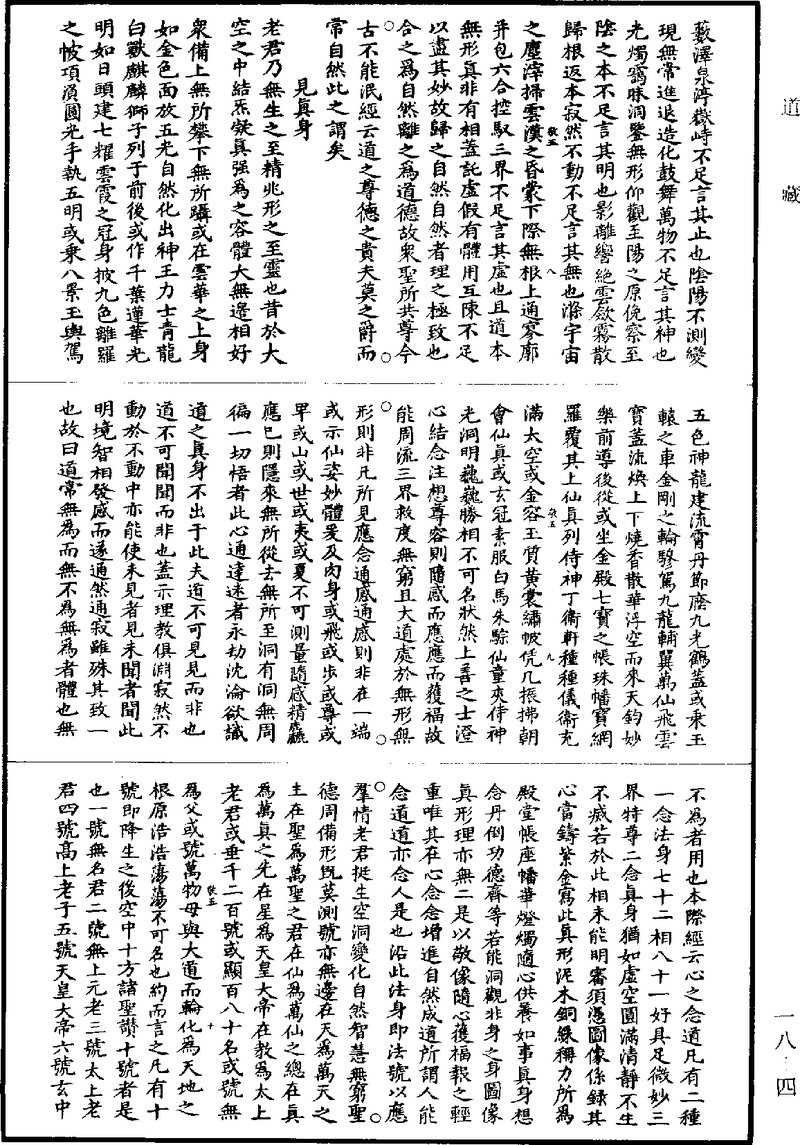 道藏
藪澤泉渟嶽峙不足言其止也陰陽不測變
現無常進退造化鼓舞萬物不足言其神也
光燭窈昧洞鑒無形仰觀至陽之原俛察至
陰之本不足言其明也影離響絕雲歛霧散
歸根返本寂然不動不足言其無也滌宇宙
之塵滓掃雲漢之昏蒙下際無根上通寥廓
并包六合控馭三界不足言其虛也且道本
無形真非有相蓋託虛假有體用互陳不足
以盡其妙故歸之自然自然者理之極致也
合之為自然離之為道德故衆聖所共尊今
古不能泯經云道之尊德之貴夫莫之爵而
常自然此之謂矣
見真身
老君乃無生之至精兆形之至靈也昔於大
空之中結炁凝真強為之容體大無邊相好
衆備上無所攀下無所躡或在雲華之上身
如金色面放五光自然化出神王力士青龍
白獸麒麟獅子列于前後或作千葉蓮華光
明如日頭建七耀雲霞之冠身披九色離羅
之帔項負圓光手執五明或乘八景玉輿駕
五色神龍建流霄丹節廕九光鶴蓋或乘玉
轅之車金剛之輪驂駕九龍輔翼萬仙飛雲
寶蓋流煥上下燒香散華浮空而來天鈞妙
樂前導後從或坐金殿七寶之帳珠幡寶網
羅覆其上仙真列侍神丁衛軒種種儀衛充
滿太空或金容玉質黃裳繡帔凭几振拂朝
會仙真或玄冠素服白馬朱騣仙童夾侍神
光洞明巍巍勝相不可名狀然上善之士澄
心結念注想尊容則隨感而應應而獲福故
能周流三界救度無窮且大道處於無形無
形則非凡所見應念通感通感則非在一端
或示仙姿妙體爰及肉身或飛或步或尊或
卑或山或世或夷或夏不可測量隨感精麤
應已則隱來無所從去無所至洞有洞無周
徧一切悟者此心通達迷者永劫沈淪欲識
道之真身不出于此夫道不可見見而非也
道不可聞聞而非也蓋示理教俱淵寂然不
動於不動中亦能使未見者見未聞者聞此
明境智相發感而遂通然通寂雖殊其致一
也故曰道常無為而無不為無為者體也無
不為者用也本際經云心之念道凡有二種
一念法身七十二相八十一好具足微妙三
界特尊二念真身猶如虛空圓滿清靜不生
不滅若於此相未能明審須憑圖像係録其
心當鑄紫金寫此真形泥木銅綵稱力所為
殿堂帳座幡華燈燭隨心供養如事真身想
念丹倒功德齊等若能洞觀非身之身圖像
真形理亦無二是以敬像隨心獲福報之輕
重唯其在心念念增進自然成道所謂人能
念道道亦念人是也沿此法身即法號以應
羣情老君挺生空洞變化自然智慧無窮聖
德周備形既莫測號亦無邊在天為萬天之
主在聖為萬聖之君在仙為萬仙之總在真
為萬真之先在星為天皇大帝在教為太上
老君或垂千二百號或顯百八十名或號無
為父或號萬物母與大道而輪化為天地之
根原浩浩蕩蕩不可名也約而言之凡有十
號即降生之後空中十方諸聖讚十號者是
也一號無名君二號無上元老三號太上老
君四號高上老子五號天皇大帝六號玄中
一八·四